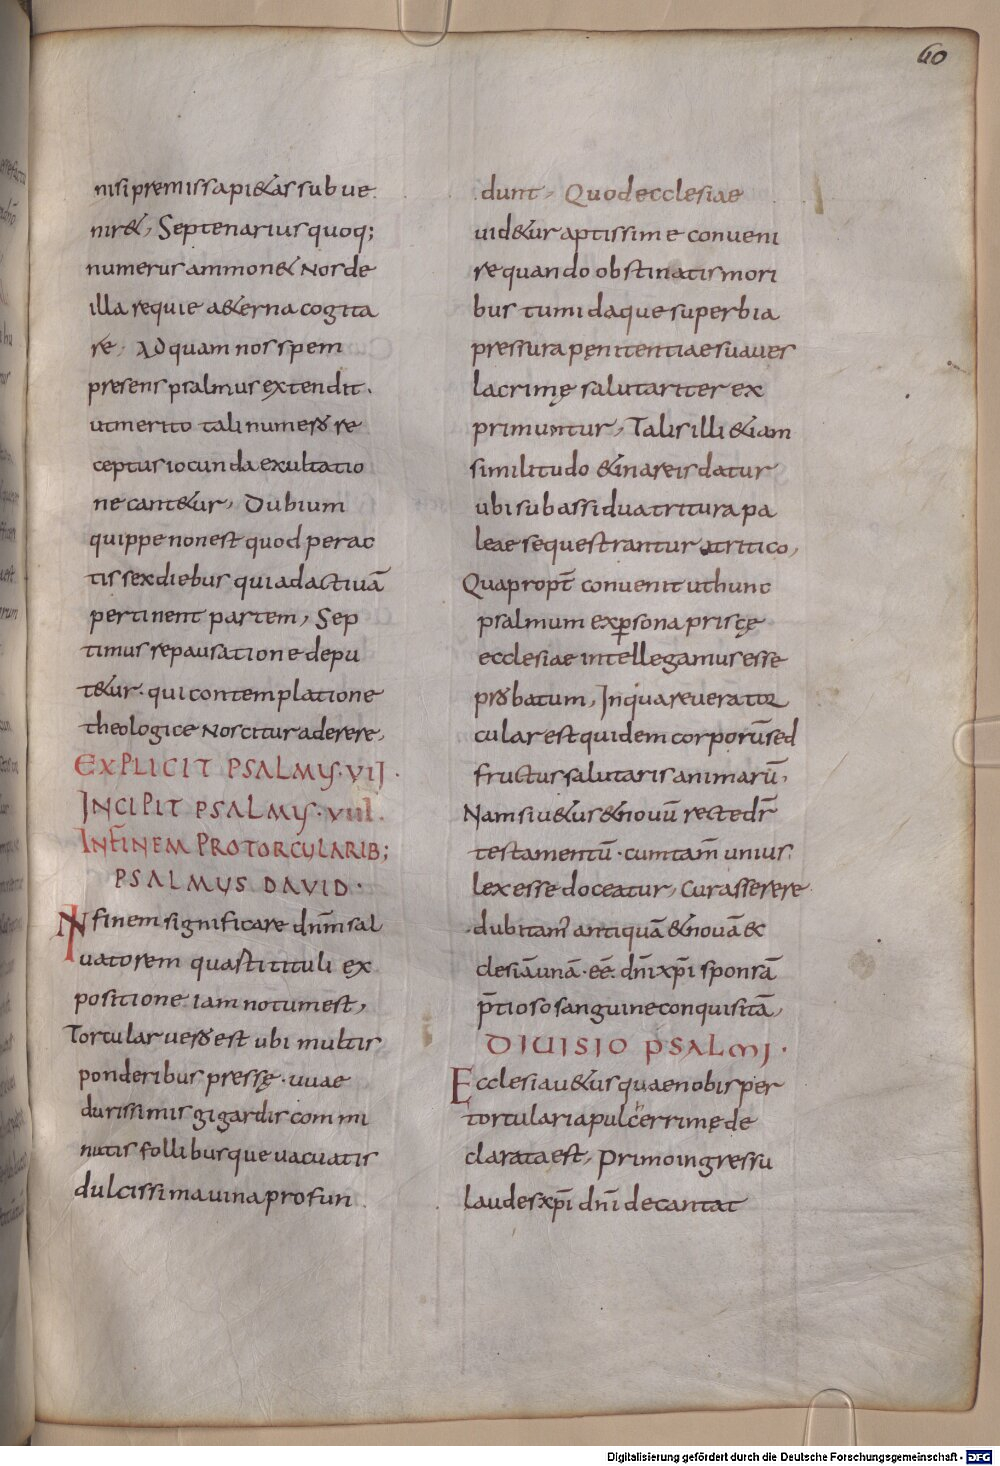 60
nisi premissa pi&as subue
nir&, Septenarius quoq;
numerus ammon& nos de
illa requie a&erna cogita
re, ad quam nos spem
presens psalmus extendit.
ut merito tali numero re
ceptus iocunda exultatio
ne cant&ur, Dubium
quippe non est quod perac
tis sex diebus qui ad actiuā
pertinent partem, Sep
timus repausatione depu
t&ur. qui contemplatione
theologice noscitur aderere,
EXPLICIT PSALMUS. VII.
INCIPIT PSALMUS. VIII.
IN FINEM PRO TORCULARIB;
PSALMUS DAVID.
IN finem significare dn̄m sal
uatorem quasti tituli ex
positione iam notum est,
Torcular uero est ubi multis
ponderibus pressę. uuae
durissimis gigardis commi
nutis follibusque uacuatis
dulcissima uina profun
dunt, Quod ecclesiae
uid&ur aptissime conueni
re quando obstinatis mori
bus tumidaque superbia
pressura pęnitentiae suaues
lacrimę salutariter ex
primuntur, Talis illi &iam
similitudo & in areis datur
ubi sub assidua tritura pa
leae sequestrantur a tritico,
Quapropt̄ conuenit ut hunc
psalmum ex p̱sona priscę
ecclesiae intellegamus esse
probatum, In qua reuera tor
cular est quidem corporū sed
fructus salutaris animarū,
Nam si u&us & nouū recte dr̄
testamentū. cum tam̄ unius
lex esse doceatur, Cur asserere
dubitam̄ antiquā & nouā ec
clesiā unā. eē dn̄i xp̄i sponsā
p̄tioso sanguine conquisitā,
DIUISIO PSALMI.
Ecclesia u&us quae nobis per
torcularia pulcerrimę de
clarata est, primo ingressu
laudes xp̄i dn̄i decantat
Digitalisierung gefördert durch die Deutsche Forschungsgemeinschaft - DFG